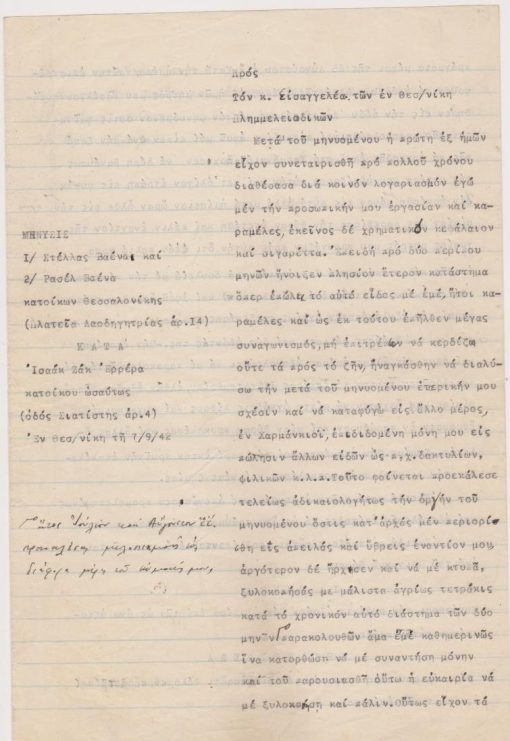 Πρός
Τόν κ. Εἰσαγγελέα τῶν ἐν Θεσ/νίκη
Πλημμελειοδικῶν
Μετά τοῦ μηνυομένου ἡ πρώτη ἐξ ἡμῶν
εἶχον συνεταιρισθῆ πρό πολλοῦ χρόνου
διαθέσασα διά κοινόν λογαριασμόν ἐγώ
μέν τήν προσωπικήν μου ἐργασίαν καί κα-
ραμέλες, ἐκεῖνος δέ χρηματικόν κεφάλαιον
καί σιγαρέττα. Ἐπειδή πρό δύο περίπου
μηνῶν ἤνοιξεν πλησίον ἕτερον κατάστημα
ὅπερ ἐπώλει τό αὐτό εἶδος μέ ἐμέ, ἤτοι κα-
ραμέλες καί ὡς ἐκ τούτου ἐπῆλθεν μέγας
συναγωνισμός, μή ἐπιτρέπων νά κερδίζω
οὔτε τά πρός τό ζῆν, ἠναγκάσθην νά διαλύ-
σω τήν μετά τοῦ μηνυομένου ἑταιρικήν μου
σχέσιν καί νά καταφύγω εἰς ἄλλο μέρος,
ἐν Χαρμάνκιοϊ, ἐπιδιδομένη μόνη μου εἰς
πώλησιν ἄλλων εἰδῶν ὡς π.χ. δακτυλίων,
ψιλικῶν κ.λ.π. Τοῦτο φαίνεται προεκάλεσε
τελείως ἀδικαιολογήτως τήν ὀργήν τοῦ
μηνυομένου ὅστις κατ' ἀρχάς μέν περιορί-
σθη εἰς ἀπειλάς καί ὕβρεις ἐναντίον μου,
ἀργότερον δέ ἤρχισεν καί νά μέ κτυπᾶ,
ξυλοκοπήσάς με μάλιστα ἀγρίως τετράκις
κατά τό χρονικόν αὐτό διάστημα τῶν δύο
μηνῶν παρακολουθῶν ἅμα ἐμέ καθημερινῶς
ἵνα κατορθώση νά μέ συναντήση μόνην
καί τοῦ παρουσιασθῆ οὕτω ἡ εὐκαιρία νά
μέ ξυλοκοπήση καί πάλιν. Οὕτως εἶχον τά
ΜΗΝΥΣΙΣ
1/ Στέλλας Βαένα καί
2/ Ρασέλ Βαένα
κατοίκων Θεσσαλονίκης
(Πλατεῖα Λαοδηγητρίας ἀρ.14)
Κ Α Τ Α
Ἰσαάκ Ζάκ Ἐρρέρα
κατοίκου ὡσαύτως
(ὁδός Σιατίστης ἀρ.4)
Ἐν Θεσ/νίκη τῆ 7/9/42
Ἰούλιον καί Αὔγουστον